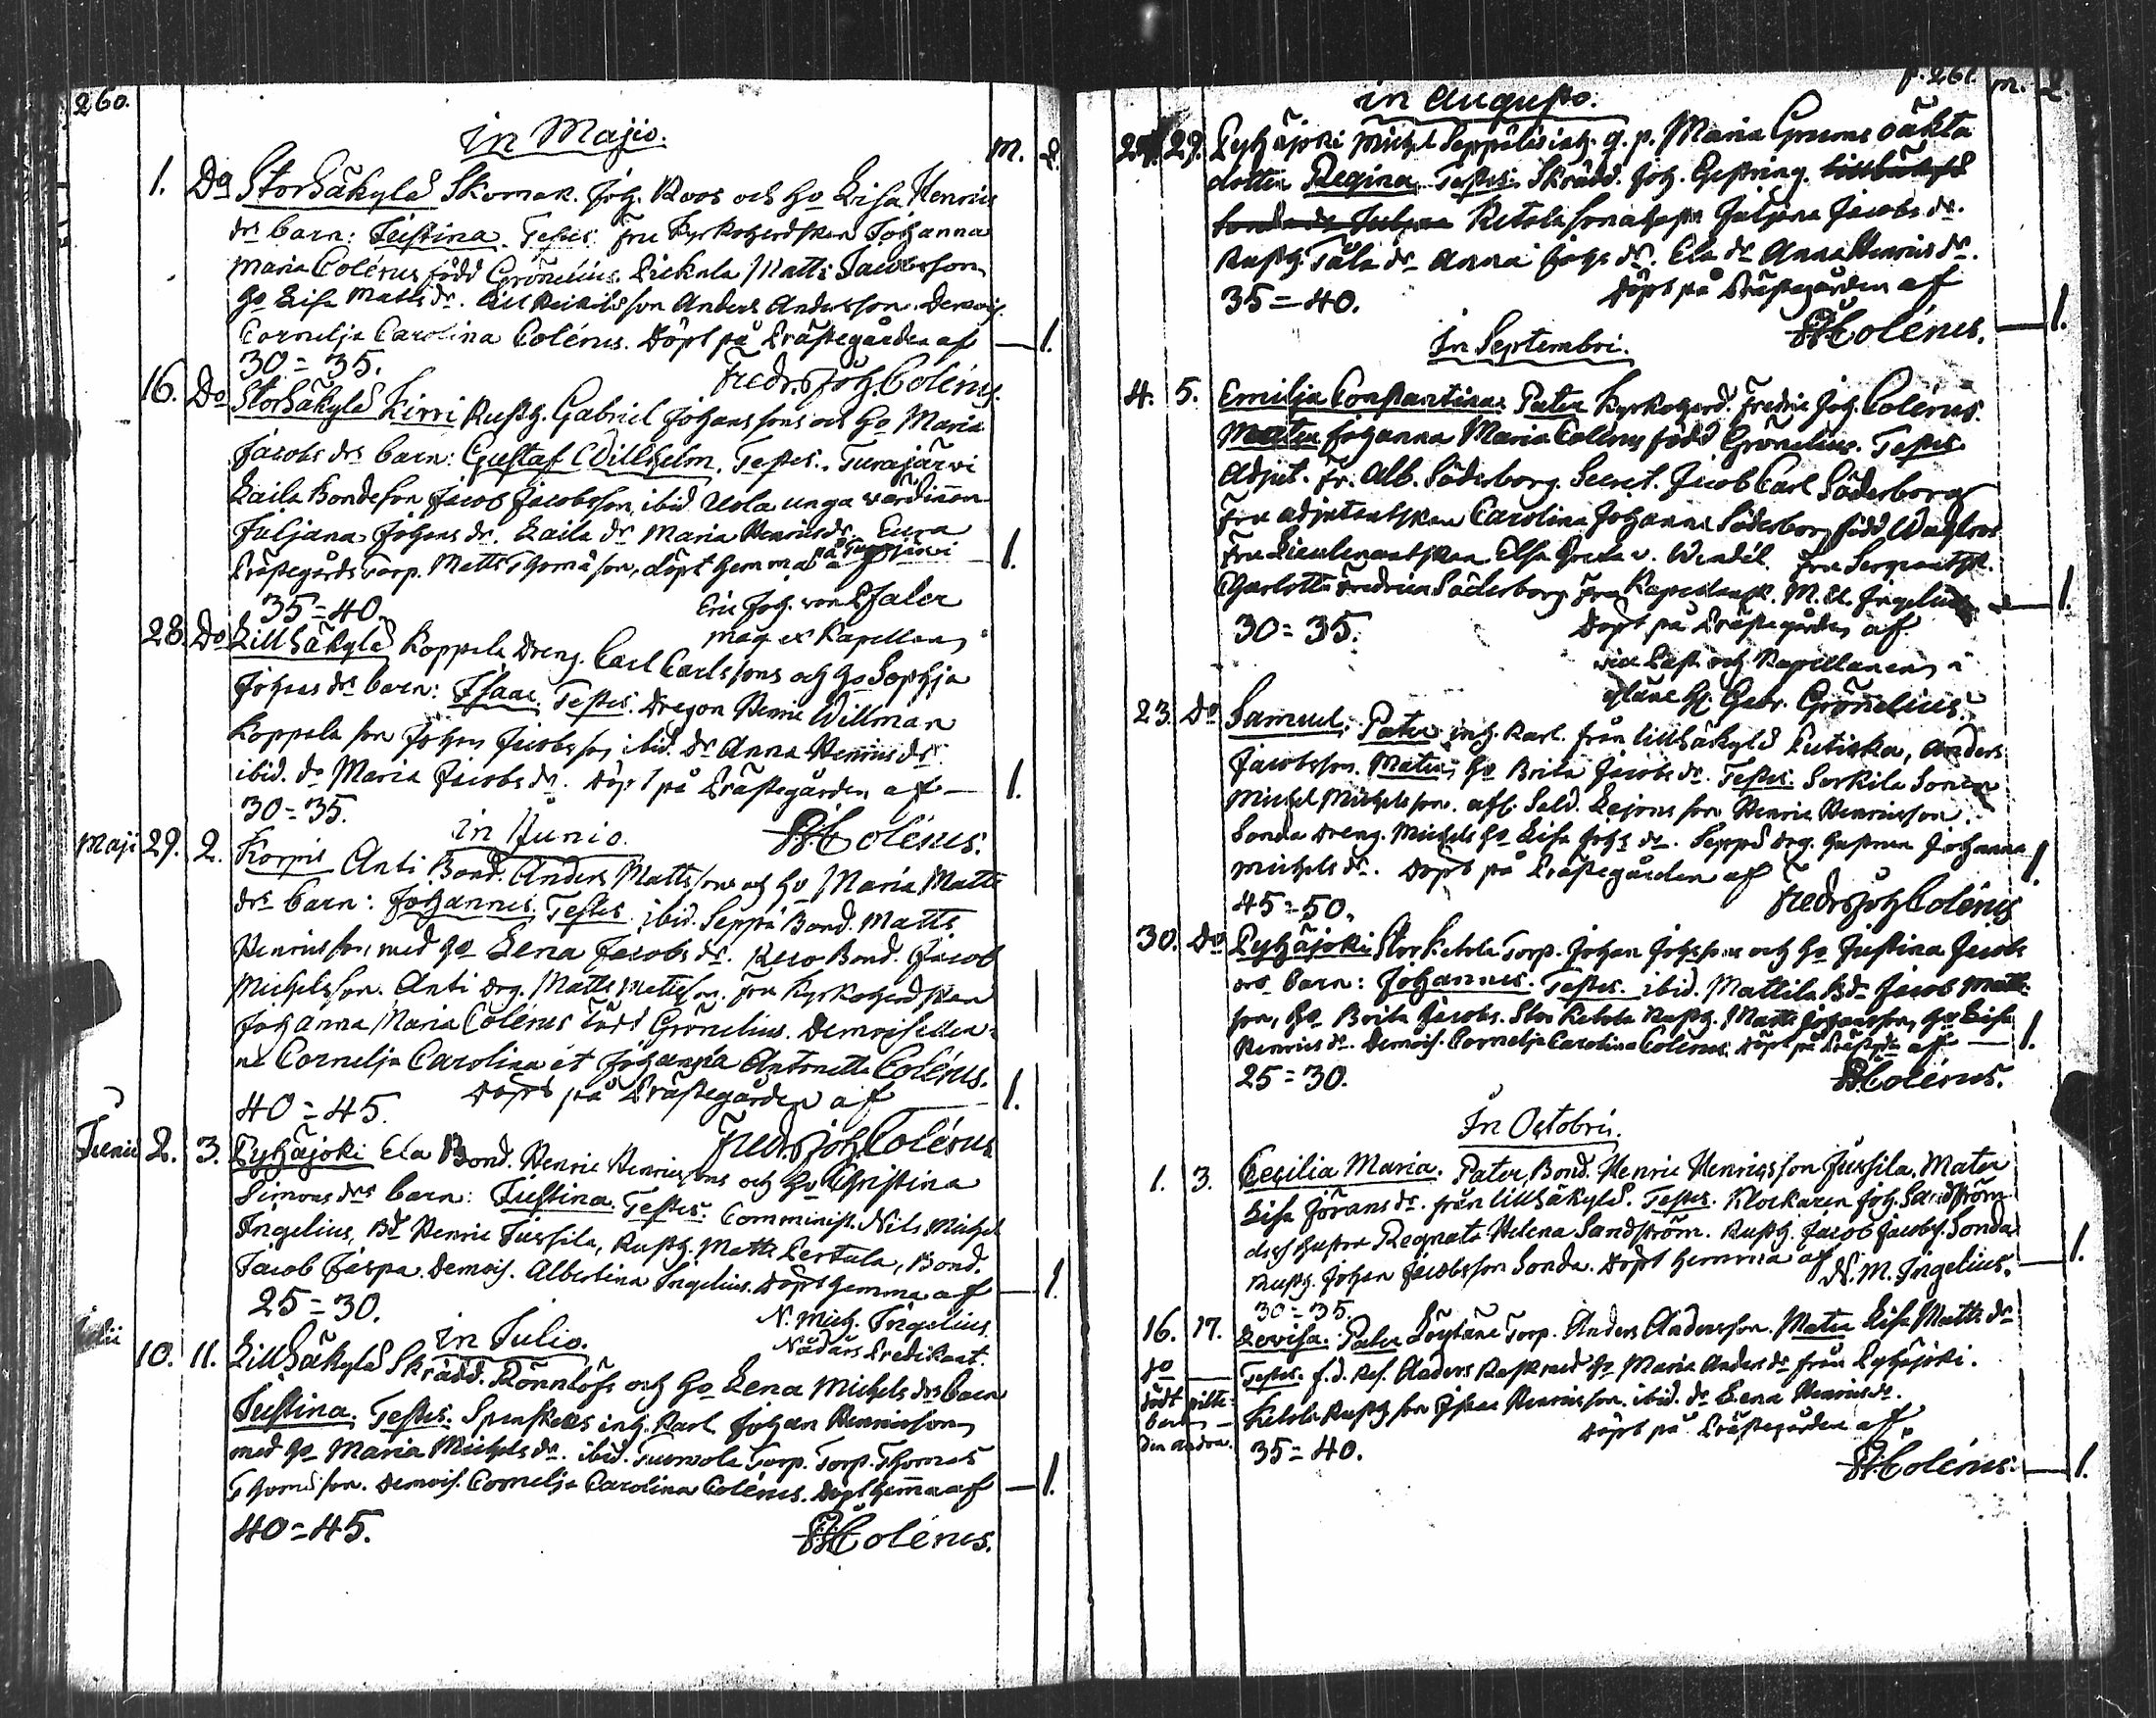 260.
in Majio.
M. Q.
1. Do Storsäkylä Skomak. Joh. Roos och ho Lisa Henrics
drs barn: Justina. Testes. Fru Kyrkoherdskan Johanna
Maria Colérus född Grönelius. Matts Jacobsson
ho Lisa Matts dr. son Anders Andersson. Demois.
Cornelja Carolina Colérus. Döpt på Prästegården af — 1.
30=35. Fredr. Joh. Colérus.
16. Do Storsäkylä Kirri Rusth. Gabriel Johanssons och ho Maria
Jacobs drs barn: Gustaf Willhelm. Testes. Turajärvi
Laila Bondeson Jacob Jacobsson, ibid. Uola unga värdinnan
Juljana Johans dr. Laila dr Maria Henricsdr. Eura
Prästegårds torp. Matts Thomasson, döpt hemma på Turajärvi — 1.
35=40. Eric Joh. von Pfaler
mag. Kapellan
28. Do Lillsäkylä Koppela Dreng. Carl Carlssons och ho Sophja
Johans drs barn: Isaac. Testes. Dragon Henric Willman
Koppela son Johan Jacobsson ibid. Dr Anna Henricsdr.
ibid. dr Maria Jacobsdr. Döpt på Prästegården af — 1.
30=35. FJColérus.
in Junio.
Maji 29. 2. Korpis Anti Bond. Anders Mattssons och ho Maria Matts
drs barn: Johannes. Testes ibid. Seppä Bond. Matts
Henricsson, med ho Lena Jacobs dr. Bond. Jacob
Michelsson. Anti drg. Matts Mattsson. Fru Kyrkoherdskan
Johanna Maria Colérus född Grönelius. Demoiseller-
ne Cornelja Carolina et Johanna Antonetta Colérus.
40=45. Döpt på Prästegården af — 1.
Fredr Joh Colérus
Junii 2. 3. Pyhäjoki Ela Bond. Henric Henricssons och ho Christina
Simons drs barn: Justina. Testes. Comminist. Nils Michel
Ingelius, Bd Henric Jussila, Rusth. Matts Pertula, Bond.
Jacob Jaspa. Demois. Albertina Ingelius. Döpt hemma af — 1.
25=30. N. Mich. Ingelius.
Nådårs Predikant.
in Julio.
Julii 10. 11. Lillsäkylä Skrädd. Rönnlöfs och ho Lena Michels drs barn
Justina. Testes. inh. Karl Johan Henricsson
med ho Maria Michels dr. ibid. Torp. Torp. Thomas
Thomasson. Demois. Cornelja Carolina Colérus. Döpt hemma af — 1.
40=45. FJColérus.
p. 261. M. Q.
in Augusto.
29. Pyhäjoki Michel Seppäläs inh. q. p. Maria oäkta
dotter Regina. Testes. Skrädd. Joh.
Ketola sonahustr. Juljana Jacobs dr.
Rusth. dr Anna Johs dr. Ela dr Anna Henrics dr.
35=40. Döpt på Prästegården af
FJColérus. — 1.
In Septembri.
4. 5. Emilja Constantina. Pater Kyrkoherd. Fredric Joh. Colérus.
Mater Johanna Maria Colérus född Grönelius. Testes.
Adjut. Fr. Alb. Söderborg. Secret. Jacob Carl Söderborg
Fru adjutantskan Carolina Johanna Söderborg född
Fru Lieutenantskan Elsa Greta v. Wendel. Fru Sergeantsk.
Charlotta Fredrica Söderborg. Fru Kapellansk. M. El. Ingelius — 1.
30=35. Döpt på Prästegården af
vice Past. och Kapellanen i
Yläne Hr Gabr. Grönelius.
23. Do Samuel. Pater inh. Karl. från Lillsäkylä Putiska, Anders
Jacobsson. Mater ho Brita Jacobs dr. Testes. Sorkila Sonen
Michel Michelsson. afl. Sold. Lejons son Henric Henricsson.
Sonda Dreng. Michels ho Lisa Johs dr. Seppä drg. hustrun Johanna
Michels dr. Döpt på Prästegården af — 1.
45=50. Fredr Joh Colérus
30. Do Pyhäjoki Stor Ketola Torp. Johan Johssons och ho Justina Jacobs
drs barn: Johannes. Testes. ibid. Mattila Bd. Jacob Matts-
son, ho Brita Jacobs. Stor Ketola Rusth. Matts Johansson, ho Lisa
Henrics dr. Demois. Cornelja Carolina Colérus. Döpt på Prästgdn af — 1.
25=30. FJColérus.
In Octobri.
1. 3. Cecilia Maria. Pater, Bond. Henric Henricsson Jussila. Mater
Lisa Jöransdr. från Lillsäkylä. Testes. Klockaren Joh. Sandström
dess hustru Regnata Helena Sandström. Rusth. Jacob Jacobs. Sonda
Rusth. Johan Jacobsson Sonda. Döpt hemma af — 1.
N. M. Ingelius.
30=35.
16. 17. Lovisa. Pater Löytäne Torp. Anders Andersson. Mater Lisa Matts dr
Testes. f.d. Res. Anders Rask med ho Maria Anders dr från Pyhäjoki.
Ketola Rusth. son Isaac Henricsson. ibid. dr Lena Henricsdr.
Döpt på Prästegården af
35=40. FJColérus. — 1.
födt pilte-
barn
den andra.